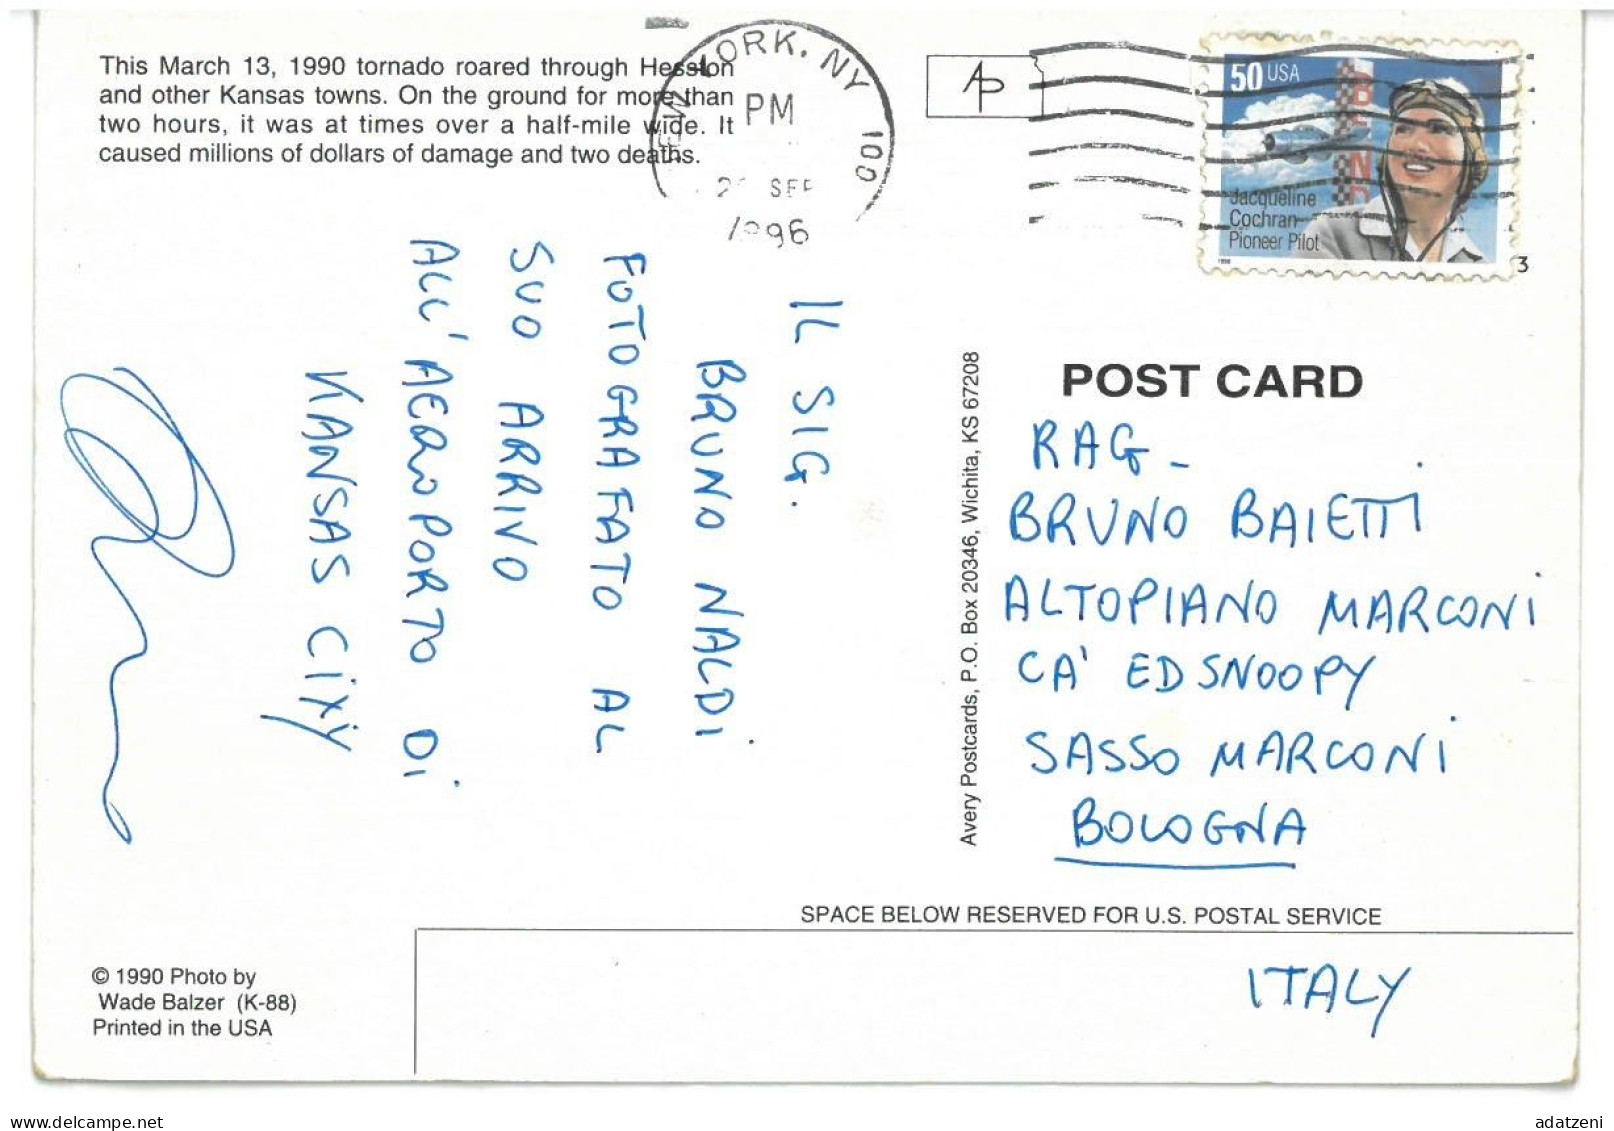 This March 13, 1990 tornado roared through Hesston
and other Kansas towns. On the ground for more than
two hours, it was at times over a half-mile wide. It
caused millions of dollars of damage and two deaths.
YORK, NY 100
PM
SEP
1996
AP
50 USA
Jacqueline
Cochran
Pioneer Pilot
1996
3
IL SIG.
BRUNO NALDI
FOTOGRAFATO AL
SUO ARRIVO
ALL'AEROPORTO DI
KANSAS CITY
Avery Postcards, P.O. Box 20346, Wichita, KS 67208
POST CARD
RAG-
BRUNO BAIETTI
ALTOPIANO MARCONI
CA' ED SNOOPY
SASSO MARCONI
BOLOGNA
SPACE BELOW RESERVED FOR U.S. POSTAL SERVICE
ITALY
© 1990 Photo by
Wade Balzer (K-88)
Printed in the USA
www.delcampe.net
adatzeni